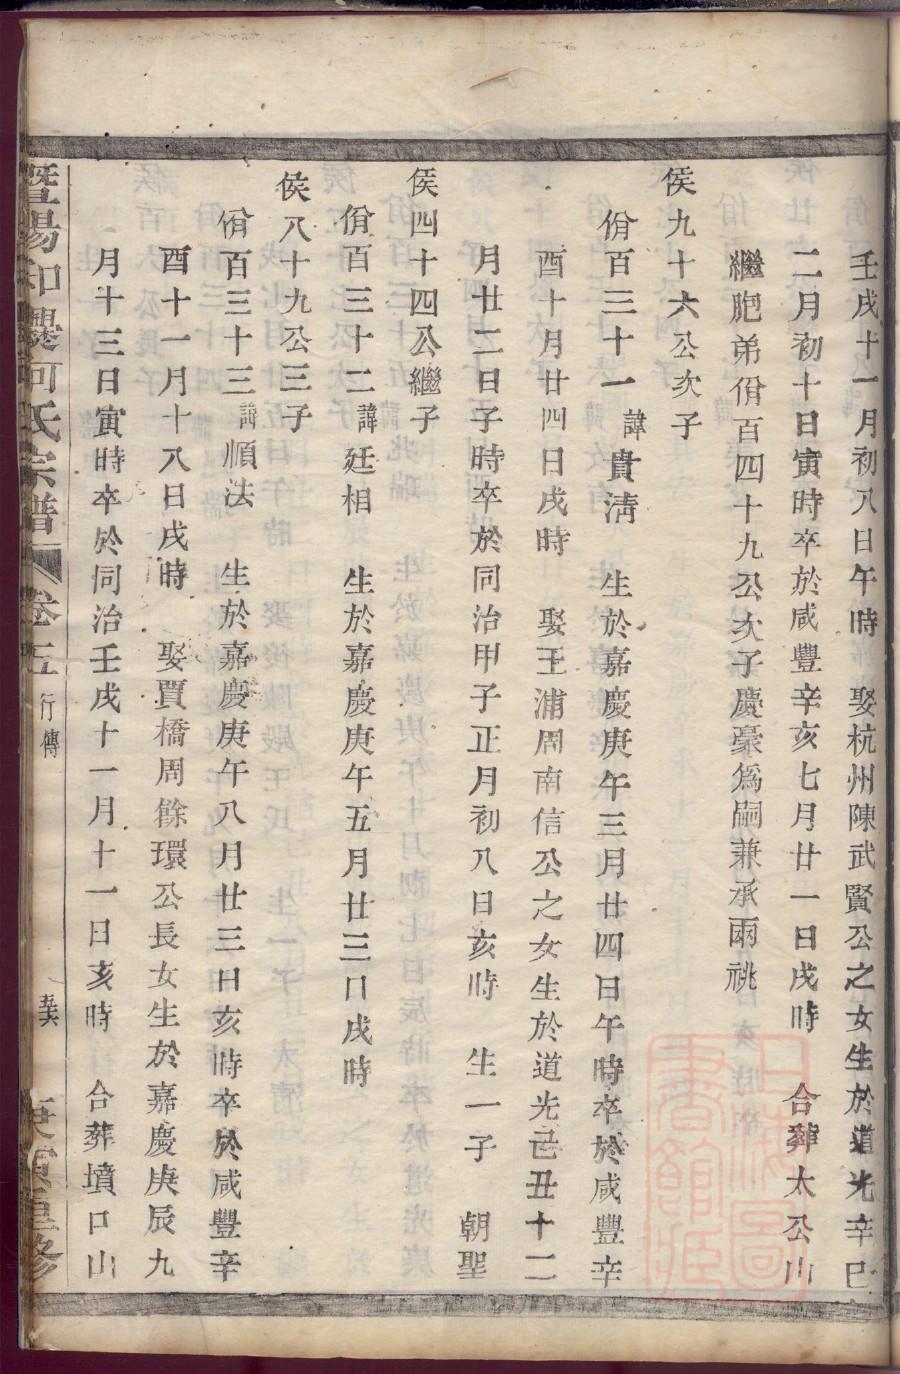 壬戌十一月初八日午時　娶杭州陳武賢公之女生於道光辛巳
二月初十日寅時卒於咸豐辛亥七月廿一日戌時　合葬太公山
繼胞弟佾百四十九公次子慶豪爲嗣兼承兩祧
侯九十六公次子
佾百三十一諱貴淸　生於嘉慶庚午三月廿四日午時卒於咸豐辛
酉十月廿四日戌時　娶王浦周南信公之女生於道光己丑十二
月廿二日子時卒於同治甲子正月初八日亥時　生一子　朝聖
侯四十四公繼子
佾百三十二諱廷相　生於嘉慶庚午五月廿三日戌時
侯八十九公三子
佾百三十三諱順法　生於嘉慶庚午八月廿三日亥時卒於咸豐辛
酉十一月十八日戌時　娶賈橋周餘環公長女生於嘉慶庚辰九
月十三日寅時卒於同治壬戌十一月十一日亥時　合葬墳口山
暨陽和㬠何氏宗譜　卷之五　行傳　庚寅重修